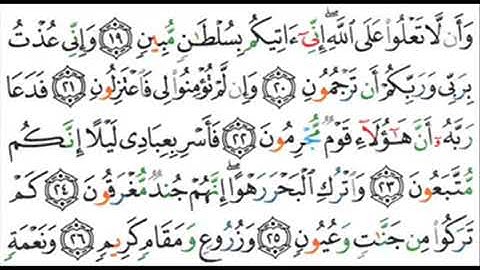 وَأَن لَّا تَعْلُوا۟ عَلَى ٱللَّهِ ۖ إِنِّىٓ ءَاتِيكُم بِسُلْطَـٰنٍ مُّبِينٍ ۝١٩ وَإِنِّى عُذْتُ
بِرَبِّى وَرَبِّكُمْ أَن تَرْجُمُونِ ۝٢٠ وَإِن لَّمْ تُؤْمِنُوا۟ لِى فَٱعْتَزِلُونِ ۝٢١ فَدَعَا
رَبَّهُۥٓ أَنَّ هَـٰٓؤُلَآءِ قَوْمٌ مُّجْرِمُونَ ۝٢٢ فَأَسْرِ بِعِبَادِى لَيْلًا إِنَّكُم
مُّتَّبَعُونَ ۝٢٣ وَٱتْرُكِ ٱلْبَحْرَ رَهْوًا ۖ إِنَّهُمْ جُندٌ مُّغْرَقُونَ ۝٢٤ كَمْ
تَرَكُوا۟ مِن جَنَّـٰتٍ وَعُيُونٍ ۝٢٥ وَزُرُوعٍ وَمَقَامٍ كَرِيمٍ ۝٢٦ وَنَعْمَةٍ